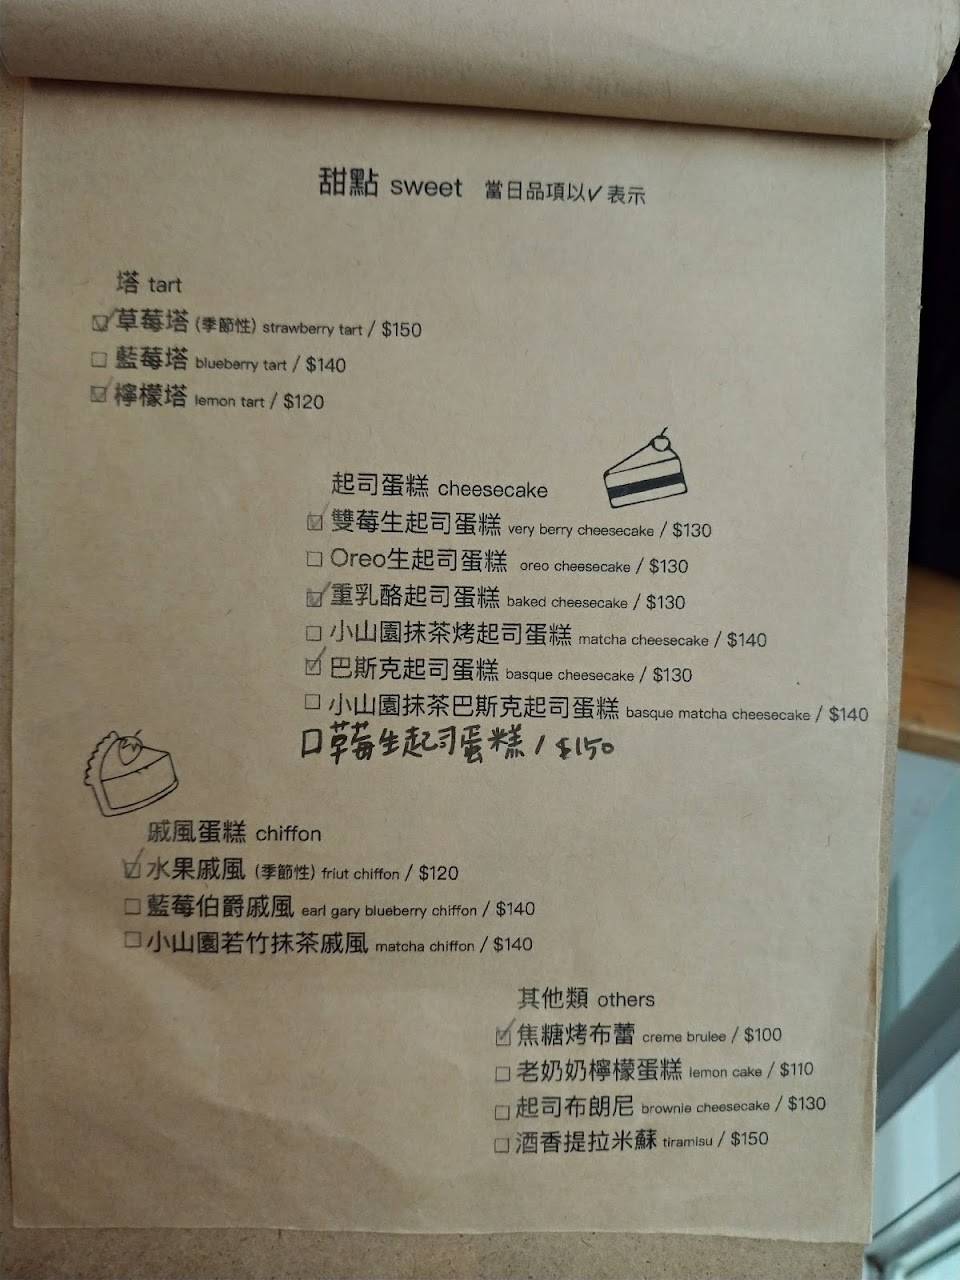 甜點 sweet 當日品項以✓表示
塔 tart
☑草莓塔 (季節性) strawberry tart / $150
☐藍莓塔 blueberry tart / $140
☑檸檬塔 lemon tart / $120
起司蛋糕 cheesecake
☑雙莓生起司蛋糕 very berry cheesecake / $130
☐Oreo生起司蛋糕 oreo cheesecake / $130
☑重乳酪起司蛋糕 baked cheesecake / $130
☐小山園抹茶烤起司蛋糕 matcha cheesecake / $140
☑巴斯克起司蛋糕 basque cheesecake / $130
☐小山園抹茶巴斯克起司蛋糕 basque matcha cheesecake / $140
☐草莓生起司蛋糕 / $150
戚風蛋糕 chiffon
☑水果戚風 (季節性) friut chiffon / $120
☐藍莓伯爵戚風 earl gary blueberry chiffon / $140
☐小山園若竹抹茶戚風 matcha chiffon / $140
其他類 others
☑焦糖烤布蕾 creme brulee / $100
☐老奶奶檸檬蛋糕 lemon cake / $110
☐起司布朗尼 brownie cheesecake / $130
☐酒香提拉米蘇 tiramisu / $150